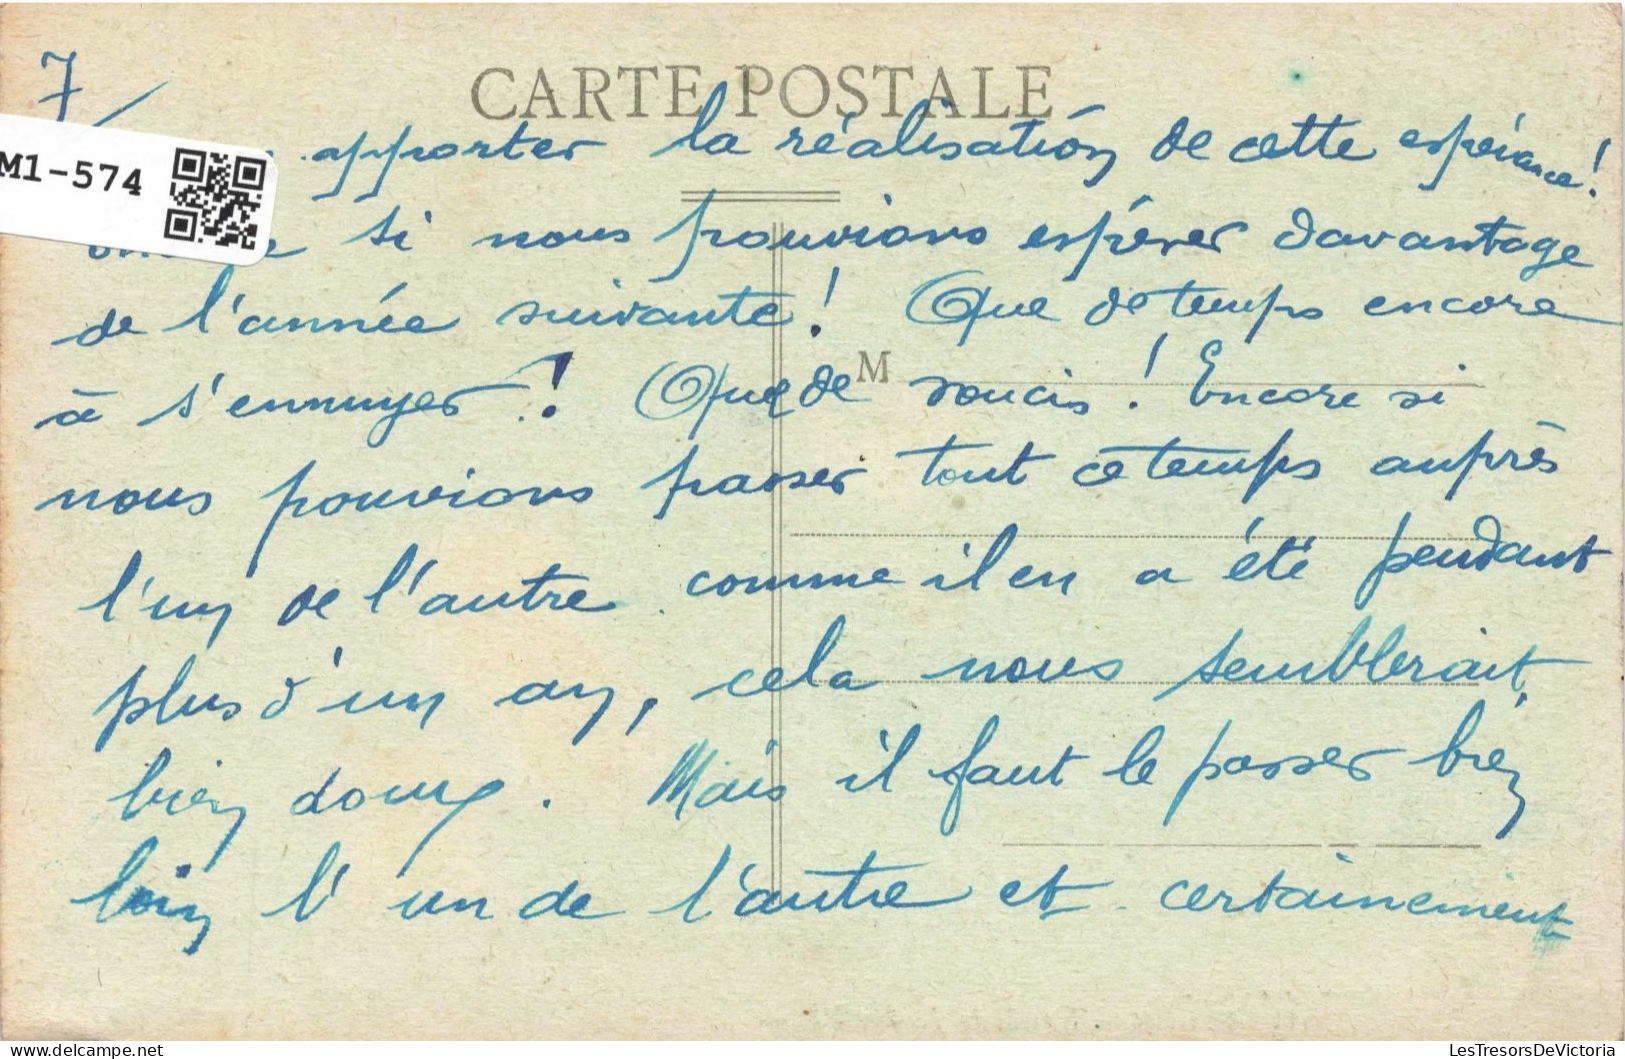 7
CARTE POSTALE
M1-574
apporter la réalisation de cette espérance!
si nous pouvions espérer davantage
de l'année suivante! Que de temps encore
à s'ennuyer! Que de soucis! Encore si
M
nous pouvions passer tout ce temps auprès
l'un de l'autre comme il en a été pendant
plus d'un an, cela nous semblerait
bien doux. Mais il faut le passer bien
loin l'un de l'autre et certainement
LesTresorsDeVictoria
delcampe.net